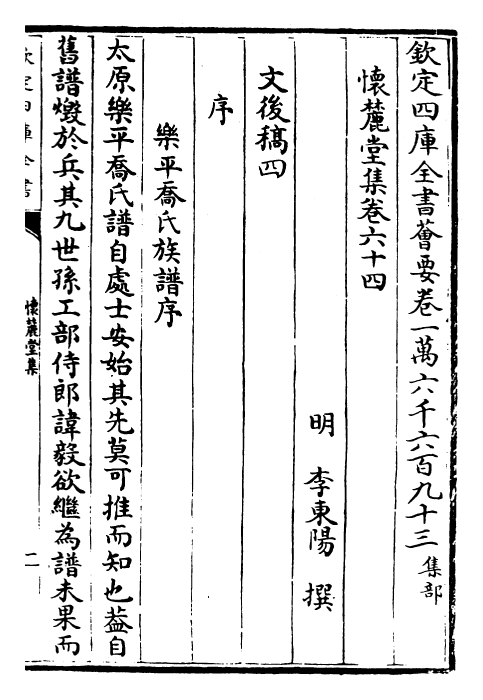 欽定四庫全書薈要卷一萬六千六百九十三 集部
懷麓堂集卷六十四
明 李東陽 撰
文後稿四
序
樂平喬氏族譜序
太原樂平喬氏譜自處士安始其先莫可推而知也葢自
舊譜燬於兵其九世孫工部侍郎諱毅欲繼為譜未果而
欽定四庫全書
懷麓堂集
二